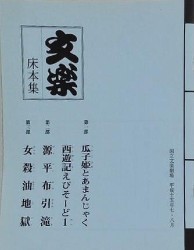 文楽
床本集
第一部
瓜子姫とあまんじゃく
西遊記えびそーど1
第二部
源平布引滝
第三部
女殺油地獄
国立文楽劇場 平成十五年七・八月